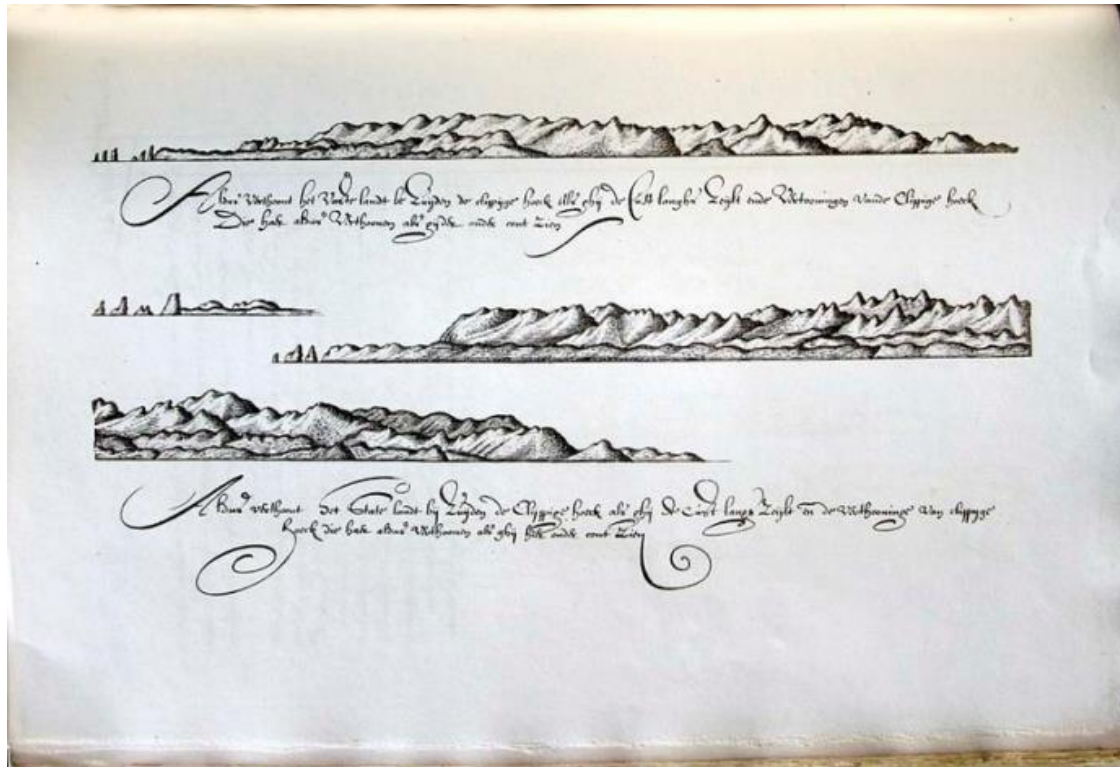 Aldus Verthoont het Vaste landt be Zuyden de clippige hoeck Als ghij de Cust langhs Zeylt ende Vertooningen Vande Clippige hoeck
Die haer aldus Verthoonen als ghy onder cont Zien
Aldus verthoont Het State landt bij Zuyden de Clippige hoeck als ghij de Cust langs Zeylt de Verthooninge Van clippige
hoeck die haer aldus Verthoonen als ghij hier onder cont Zien